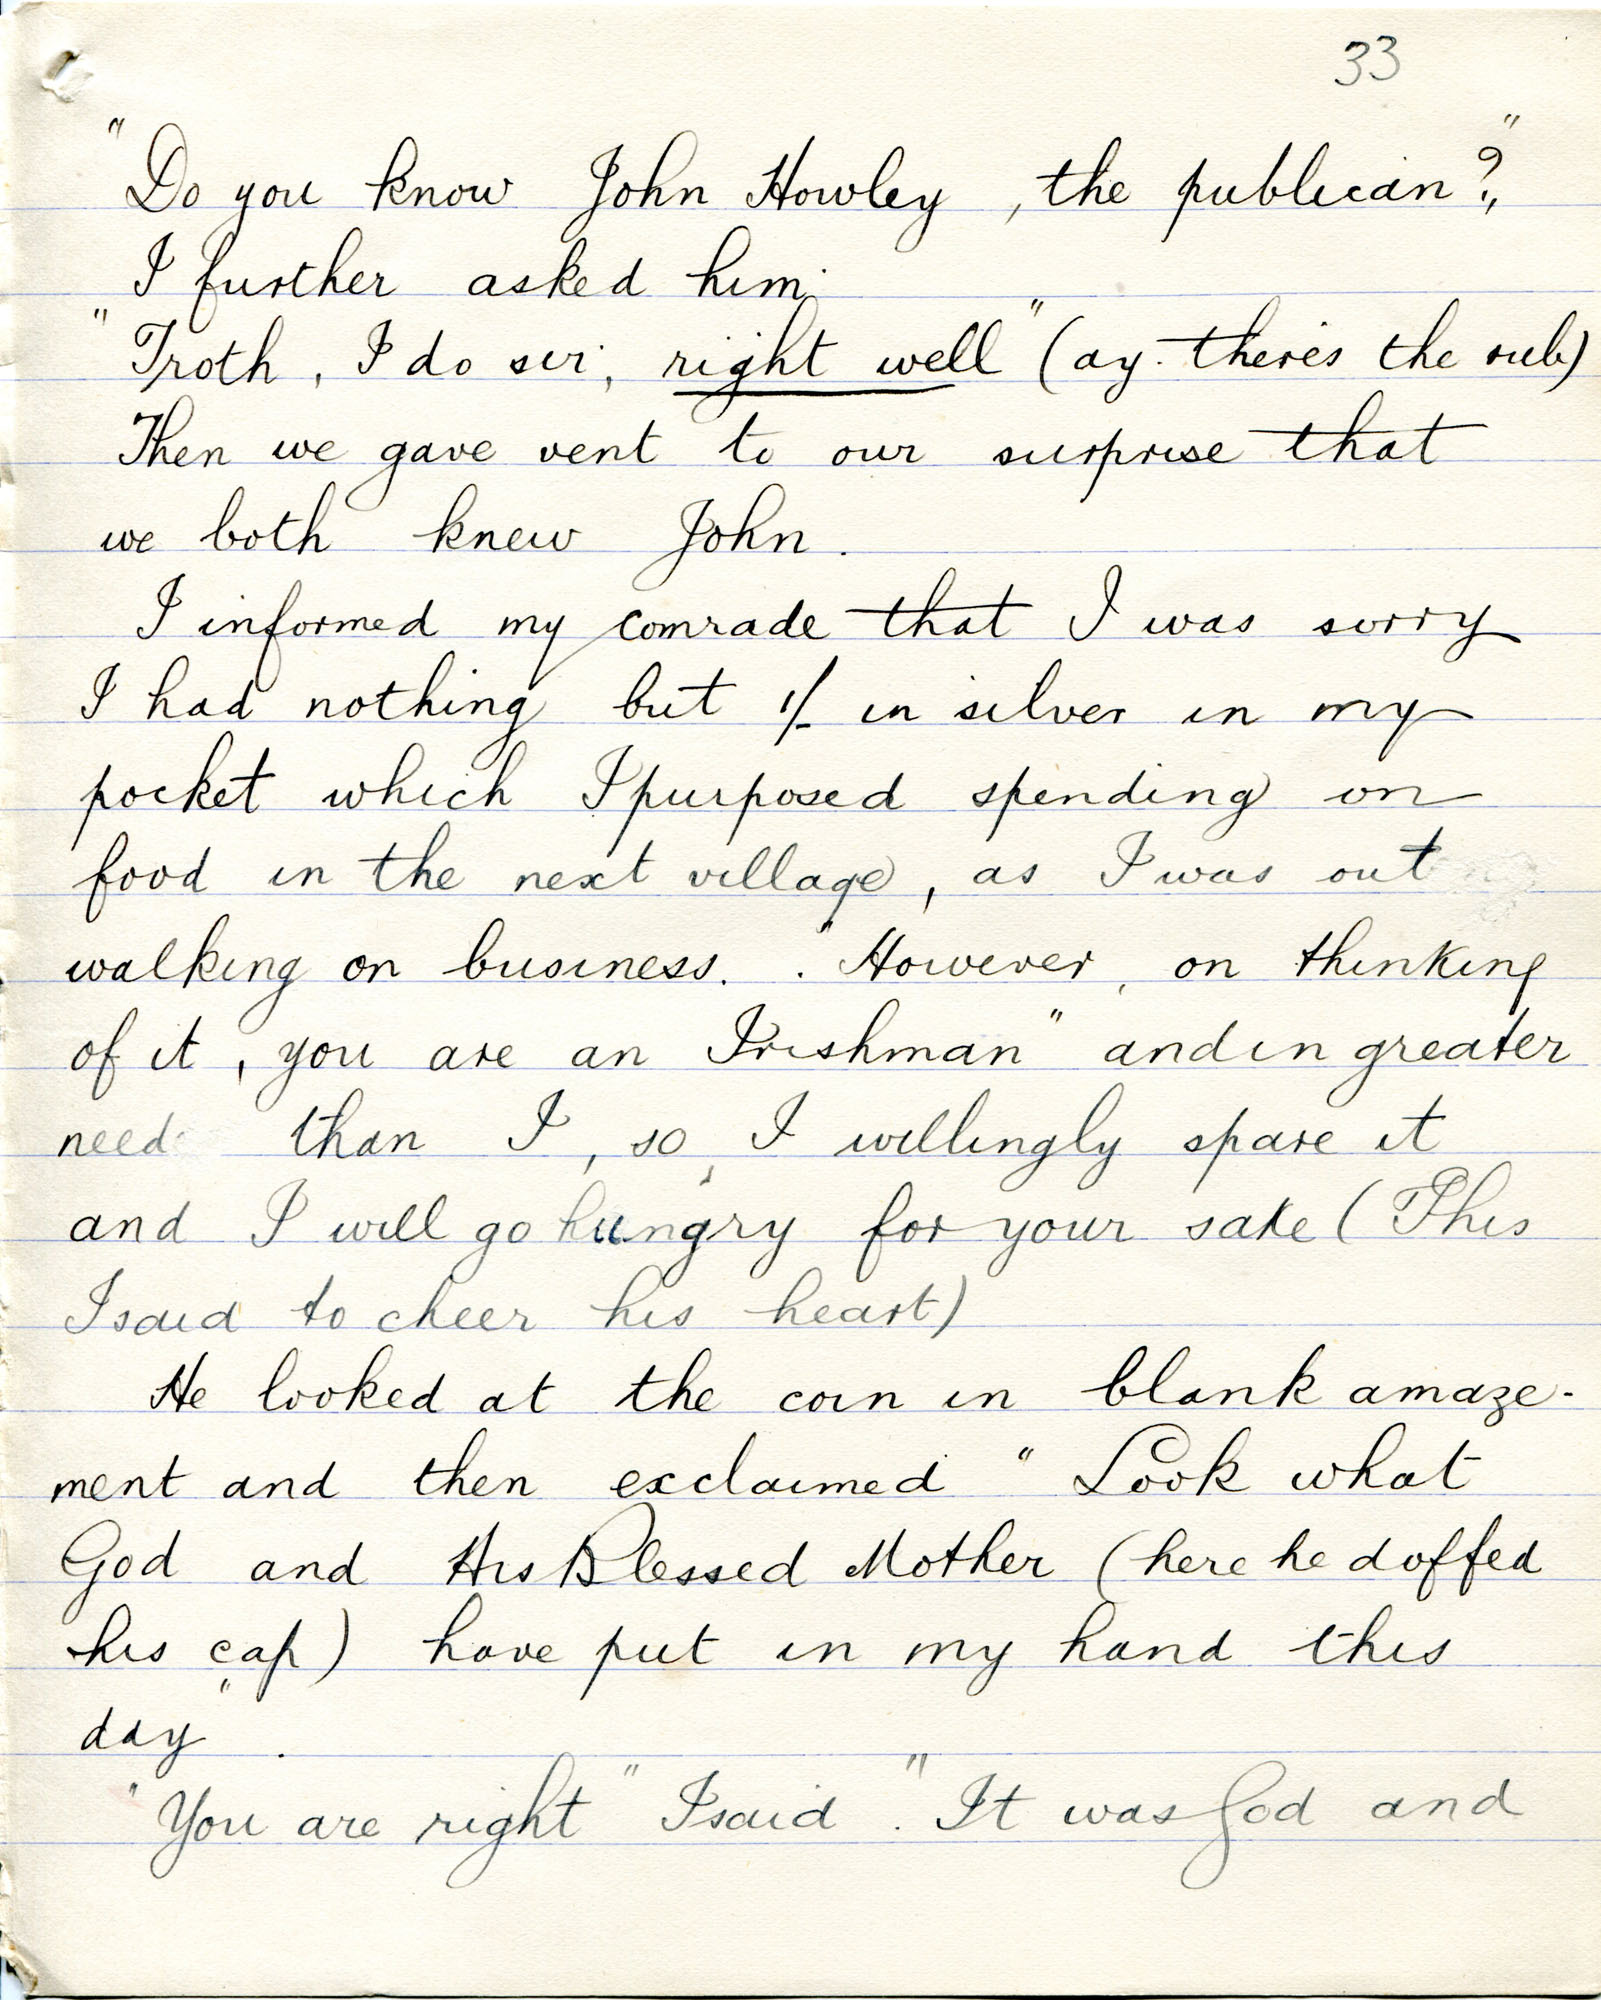 33
"Do you know John Howley, the publican?"
I further asked him.
"Troth, I do sir, right well" (ay there's the rub)
Then we gave vent to our surprise that
we both knew John.
I informed my comrade that I was sorry
I had nothing but 1/- in silver in my
pocket which I purposed spending on
food in the next village, as I was out
walking on business. "However, on thinking
of it, you are an Irishman" and in greater
need than I, so, I willingly spare it
and I will go hungry for your sake (This
I said to cheer his heart)
He looked at the coin in blank amaze-
ment and then exclaimed "Look what
God and His Blessed Mother (here he doffed
his cap) have put in my hand this
day".
"You are right" I said. "It was God and